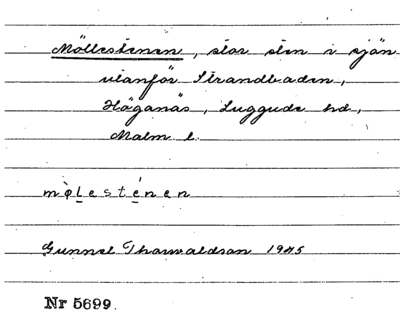 Möllestenen, stor sten i sjön
utanför Strandbaden,
Höganäs, Luggude hd,
Malm l.
mø̀lesténen
Gunnel Thorvaldson 1945
Nr 5699.